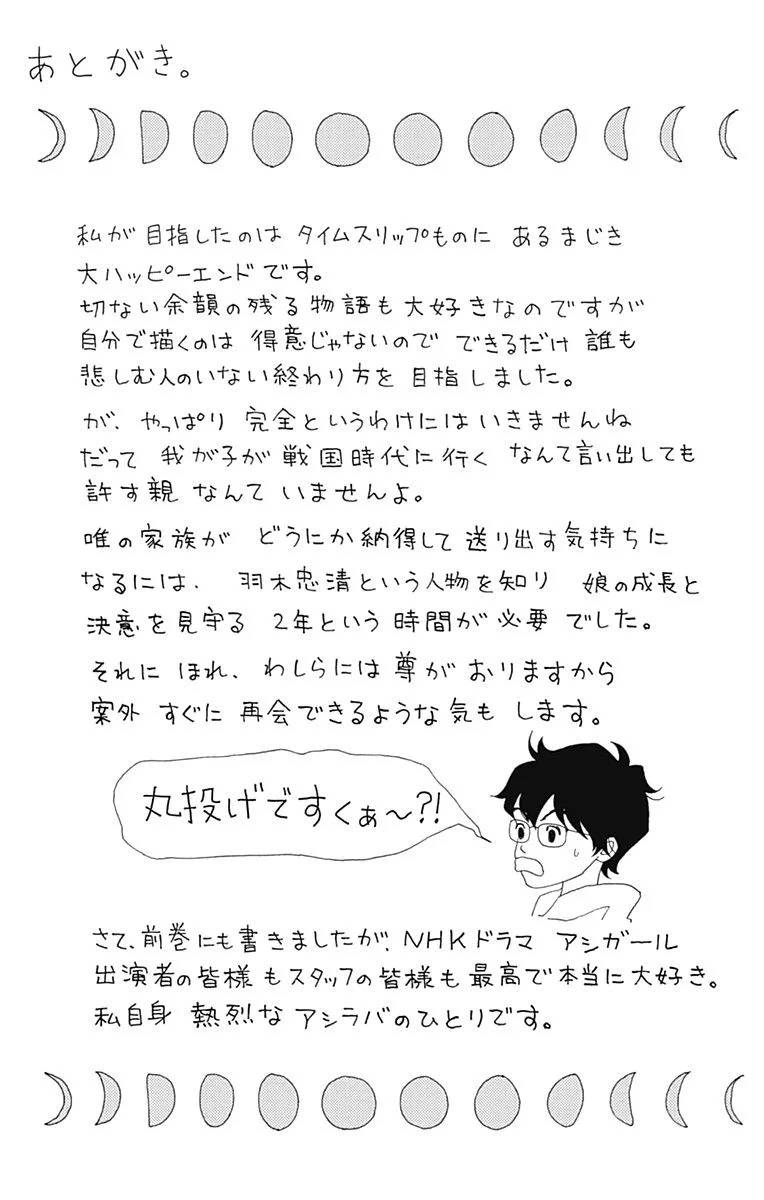 あとがき。
私が目指したのは タイムスリップものに あるまじき
大ハッピーエンドです。
切ない余韻の残る物語も大好きなのですが
自分で描くのは 得意じゃないので できるだけ 誰も
悲しむ人のいない終わり方を 目指しました。
が、やっぱり 完全というわけにはいきませんね
だって 我が子が 戦国時代に行く なんて言い出しても
許す親 なんて いませんよ。
唯の家族が どうにか納得して 送り出す気持ちに
なるには、 羽木忠清という人物を知り 娘の成長と
決意を見守る 2年という時間が必要 でした。
それに ほれ、わしらには 尊が おりますから
案外 すぐに 再会できるような気も します。
丸投げですくぁ〜?!
さて、前巻にも書きましたが、NHKドラマ アシガール
出演者の皆様もスタッフの皆様も 最高で本当に大好き。
私自身 熱烈な アシラバのひとりです。